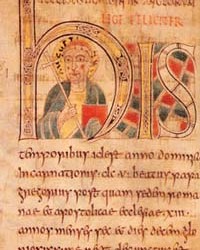 LEGE FELICITER
his
temporibus id est anno domini
Incarnationis dc v beatus papa
gregorius post quam sedem roma
nae et apostolicae ecclesiae xiii
annos menses sex et dies decem glo